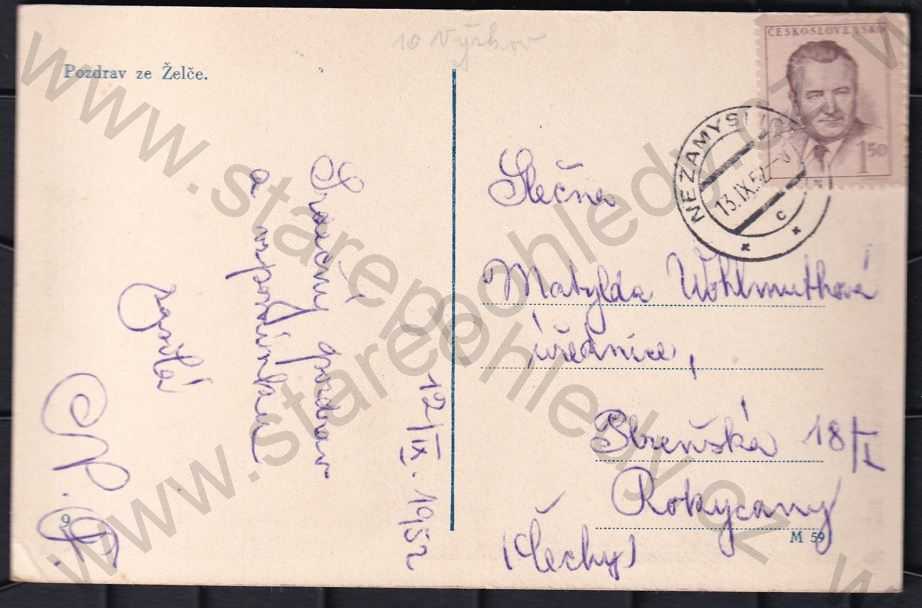 10 Vyškov
Pozdrav ze Želče.
ČESKOSLOVENSKO
1.50
NEZAMYSLICE
13.IX.52
c
12/IX. 1952
Srdečný pozdrav
a vzpomínku
zasílá
Slečna
Matylda Wohlmuthová
úřednice,
Plzeňská 18/I
Rokycany
(Čechy)
M 59
9
www.starepohledy.cz
www.starepohledy.cz